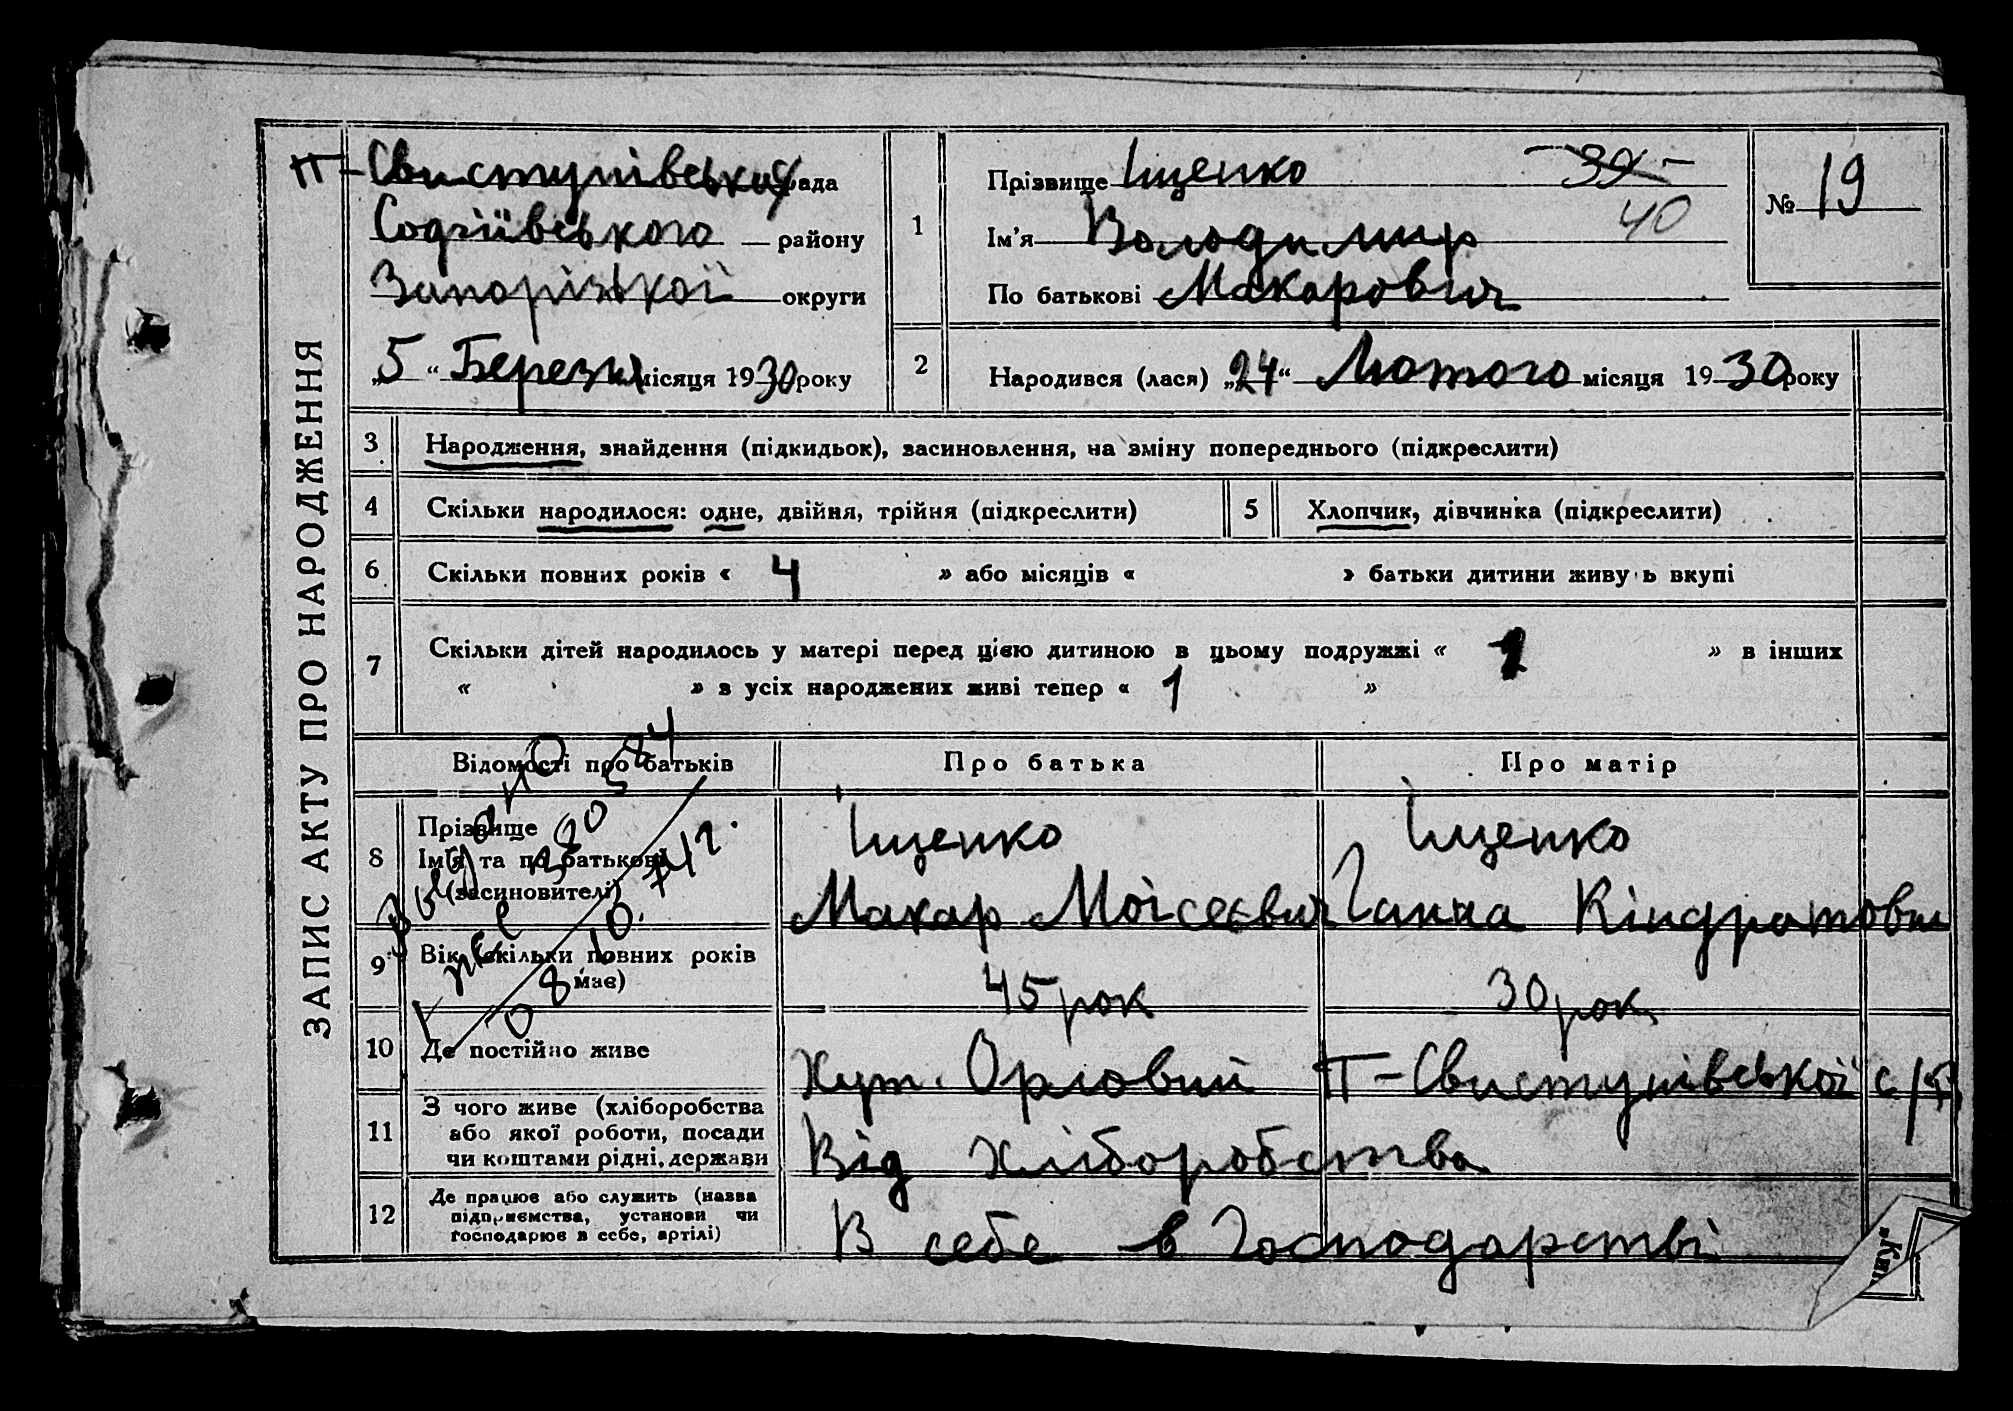 ЗАПИС АКТУ ПРО НАРОДЖЕННЯ
П-Свистунівська рада
Софіївського району
Запорізької округи
„5“ Березня місяця 1930 року
1
Прізвище Іщенко 39
Ім'я Володимир 40
По батькові Макарович
№ 19
2 Народився (лася) „24“ Лютого місяця 1930 року
3 Народження, знайдення (підкидьок), засиновлення, на зміну попереднього (підкреслити)
4 Скільки народилося: одне, двійня, трійня (підкреслити)
5 Хлопчик, дівчинка (підкреслити)
6 Скільки повних років « 4 » або місяців « » батьки дитини живуть вкупі
7 Скільки дітей народилось у матері перед цією дитиною в цьому подружжі « 1 » в інших
« » в усіх народжених живі тепер « 1 »
Відомості про батьків Про батька Про матір
8 Прізвище
Ім'я та по батькові
(засиновителі)
Іщенко Іщенко
Макар Мойсеєвич Ганна Кіндратовна
9 Вік (скільки повних років
має)
45 рок 30 рок
10 Де постійно живе
Хут. Орловий П-Свистунівської с/р
11 З чого живе (хліборобства
або якої роботи, посади
чи коштами рідні, держави
Від хліборобства
12 Де працює або служить (назва
підприємства, установи чи
господарює в себе, артілі)
В себе в господарстві
584
08.10.74г.
„Кни